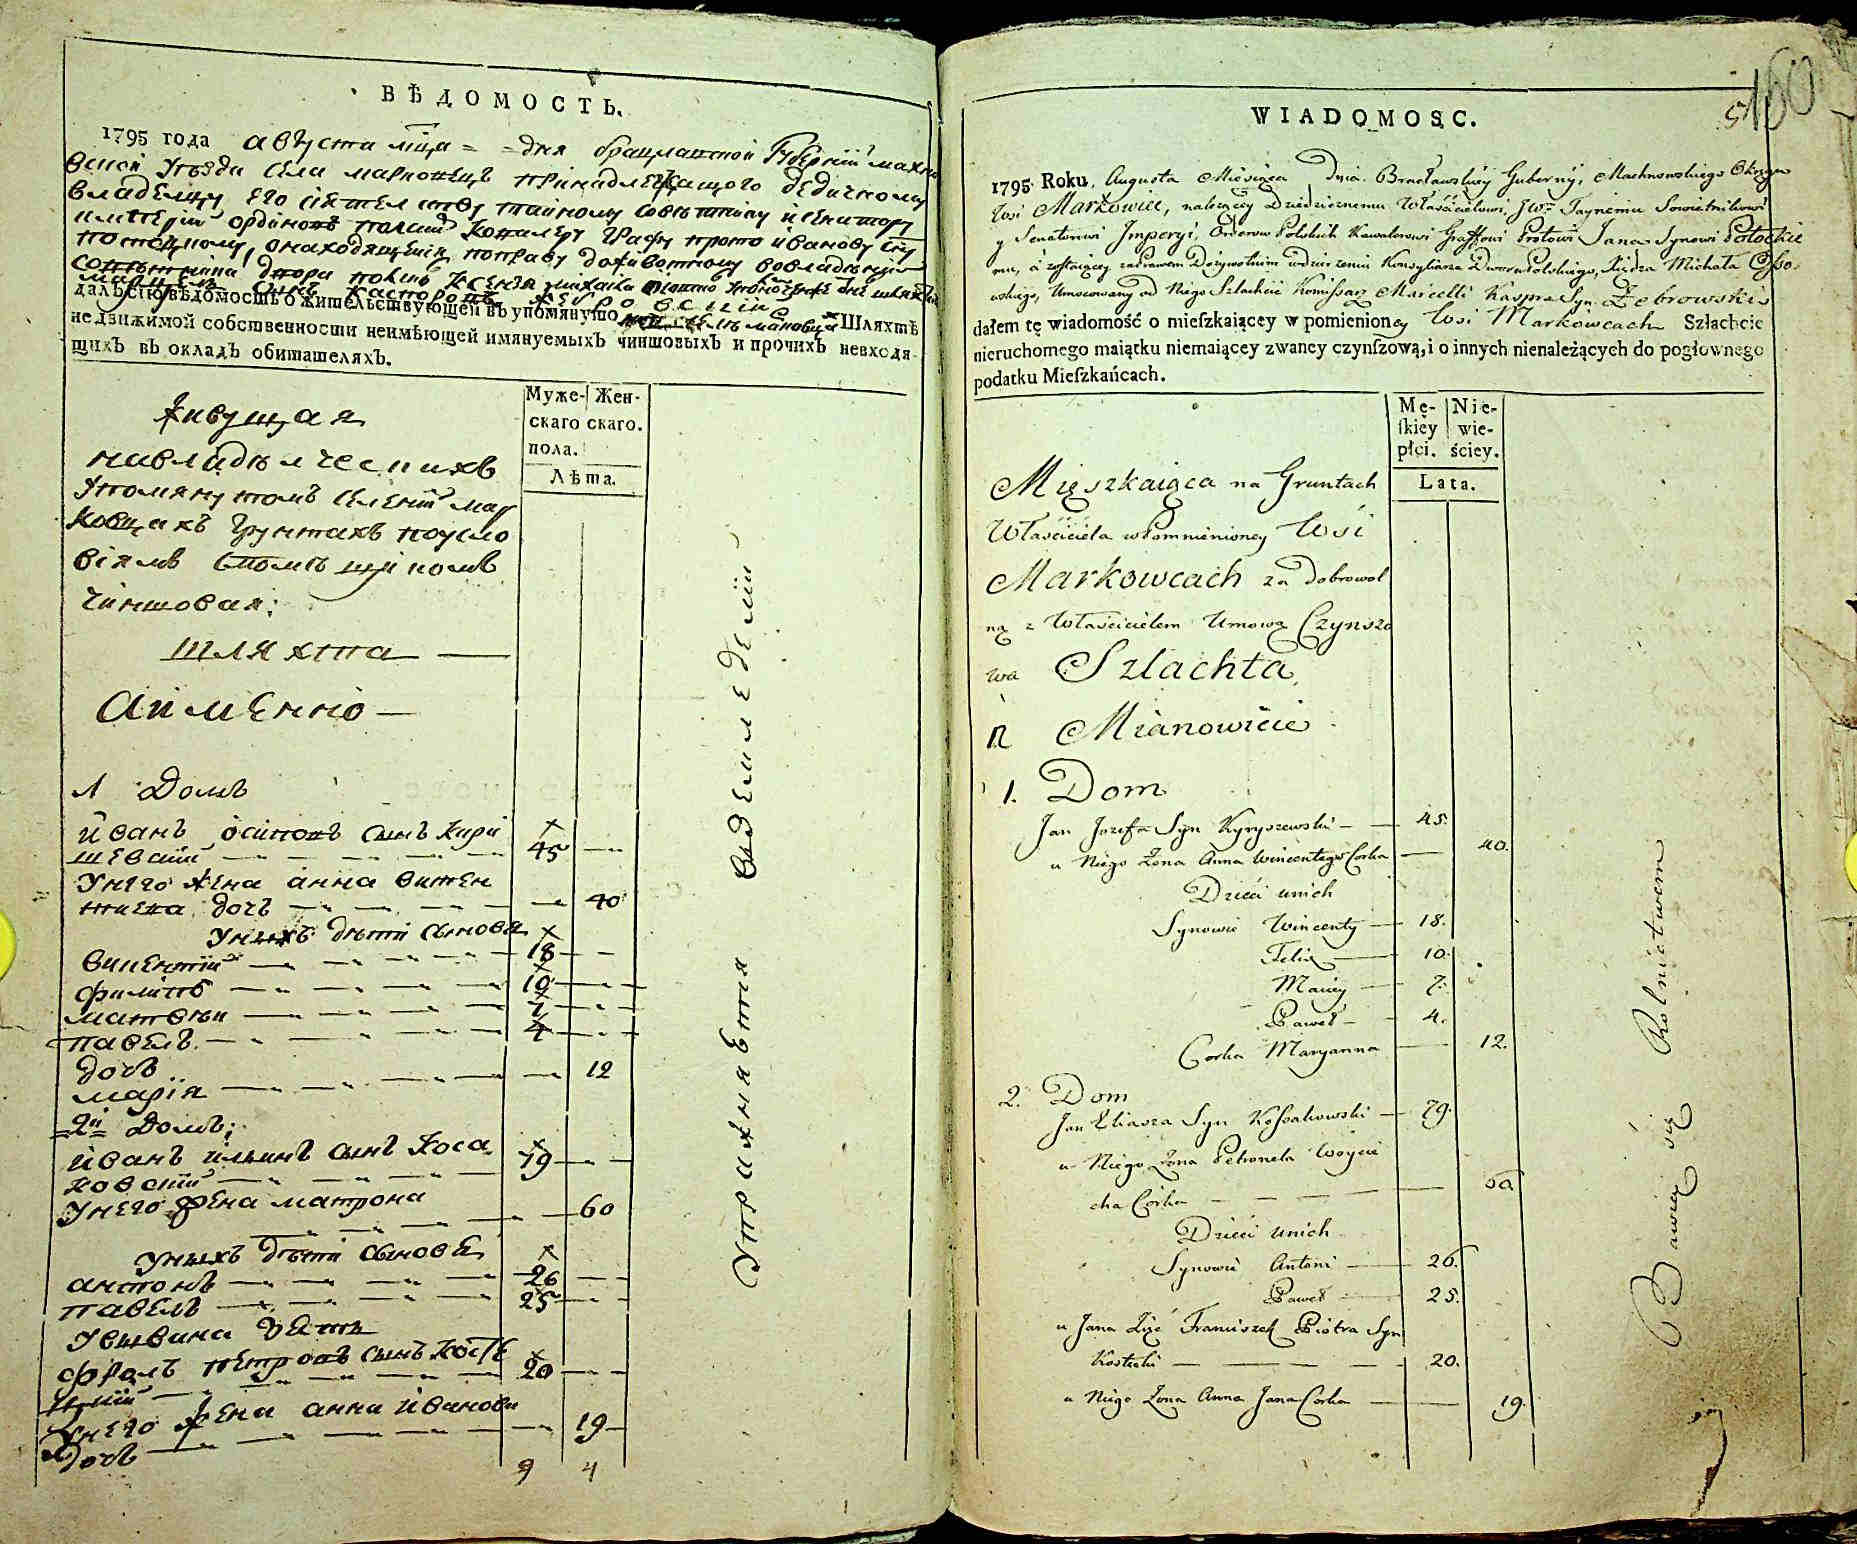 ВѢДОМОСТЬ.
1795 года августа мца = = дня брацлавской Губернии махно
вской уѣзда села марковецъ принадлежащого дѣдичному
владелцу его сіятелству тайному совѣтнику и сенатору
имперіи ординовъ полскихъ Кавалеру Графу прото иванову сну
потоцкому, а находящейся по праву доживотному во владѣніи
совѣтника двора полскаго Ксендза михаила
далъ сію вѣдомость о жительствующей въ упомянуто Шляхтѣ
недвижимой собственности неимѣющей имянуемыхъ чиншовыхъ и прочихъ невходя-
щихъ въ окладъ обитателяхъ.
Муже- Жен-
скаго скаго.
пола.
Лѣта.
Живущая
на владѣлческихъ
упомянутомъ селеніи мар
ковцахъ грунтахъ по усло
віямъ с помѣщикомъ
чиншовая:
шляхта
А имѣнно
1 Домъ
иванъ осиповъ сынъ Кири
шевский 45
у него жена анна викен
тиева дочь 40
у нихъ дѣти сынове
викентий 18
филипъ 10
матвѣй 7
павелъ 4
дочь
марія 12
2й Домъ;
иванъ ильинъ сынъ Коса
ковский 79
у него жена матрона 60
у нихъ дѣти сынове
антонъ 26
павелъ 25
у ивана зять
фролъ петровъ сынъ Кост
20
у него жена анна иванова
дочь 19
9 4
Упражняется въ земледелии
WIADOMOSC.
5 160
1795 Roku, Augusta Miesiąca Dnia Bracławskiey Gubernÿi, Machnowskiego Okręgu
Wsi Markowiec, należącey Dziedzicznemu Właścicielowi JWu Taynemu Sowietnikowi
y Senatorowi Imperyi, Orderow Polskich Kawalerowi Graffowi Protowi Jana Synowi Potockie
mu, á zostaiącey za Prawem Dożywotnim w dzierżeniu Konsyliarza Dworu Polskiego, Xiędza Michała Osso-
wskiego, Umocowany od Niego Szlachcic Komissarz Marcelli Kaspra Syn Żebrowski
dałem tę wiadomość o mieſzkaiącey w pomienioney Wsi Markowcach Szłachcie
nieruchomego maiątku niemaiącey zwaney czynſzową, i o innych nienależących do pogłownego
podatku Mieſzkańcach.
Mę- Nie-
ſkiey wie-
płci. ściey.
Lata.
Mięszkaiąca na Gruntach
Właściciela w Pomnienioney Wsi
Markowcach za dobrowol
ną z Właścicielem Umową Czynszo
wa Szlachta,
A Mianowicie
1. Dom
Jan Jozefa Syn Kyryszewski 45.
u Niego Żona Anna Wincentego Corka 40.
Dzieci u nich
Synowie Wincenty 18.
Felix 10.
Maciey 7.
Paweł 4.
Corka Maryanna 12.
2. Dom
Jan Eliasza Syn Kossakowski 79.
u Niego Żona Petronela Woycie
cha Corka 60
Dzieci u nich
Synowie Antoni 26.
Paweł 25.
u Jana Zięć Franciszek Piotra Syn
Kostecki 20.
u Niego Żona Anna Jana Corka 19.
Bawiey się Rolnictwem